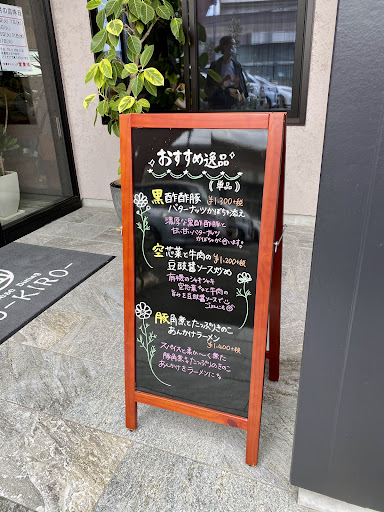 おすすめ逸品
(単品)
黒酢酢豚 ¥1,300+税
バターナッツかぼちゃ添え
濃厚な黒酢酢豚と
甘い甘いバターナッツ
かぼちゃが合います。
空芯菜と牛肉の ¥1,200+税
豆豉醤ソース炒め
シャキシャキ
空芯菜と牛肉の
豆豉醤ソースで
豚角煮とたっぷりきのこ
あんかけラーメン
¥1,400+税
スパイスと柔か〜く煮た
豚角煮とたっぷりのきのこ
あんかけをラーメンに
KIRO